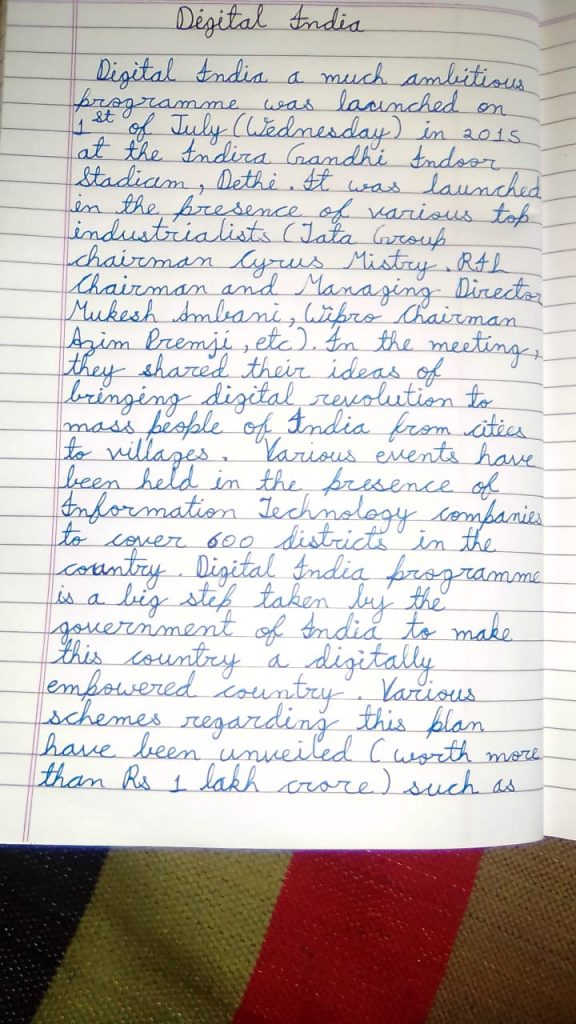 Digital India
Digital India a much ambitious
programme was launched on
1st of July (Wednesday) in 2015
at the Indira Gandhi Indoor
Stadium, Delhi. It was launched
in the presence of various top
industrialists (Tata Group
chairman Cyrus Mistry. RIL
Chairman and Managing Director
Mukesh Ambani, Wipro Chairman
Azim Premji, etc). In the meeting,
they shared their ideas of
bringing digital revolution to
mass people of India from cities
to villages. Various events have
been held in the presence of
Information Technology companies
to cover 600 districts in the
country. Digital India programme
is a big step taken by the
government of India to make
this country a digitally
empowered country. Various
schemes regarding this plan
have been unveiled (worth more
than Rs 1 lakh crore) such as